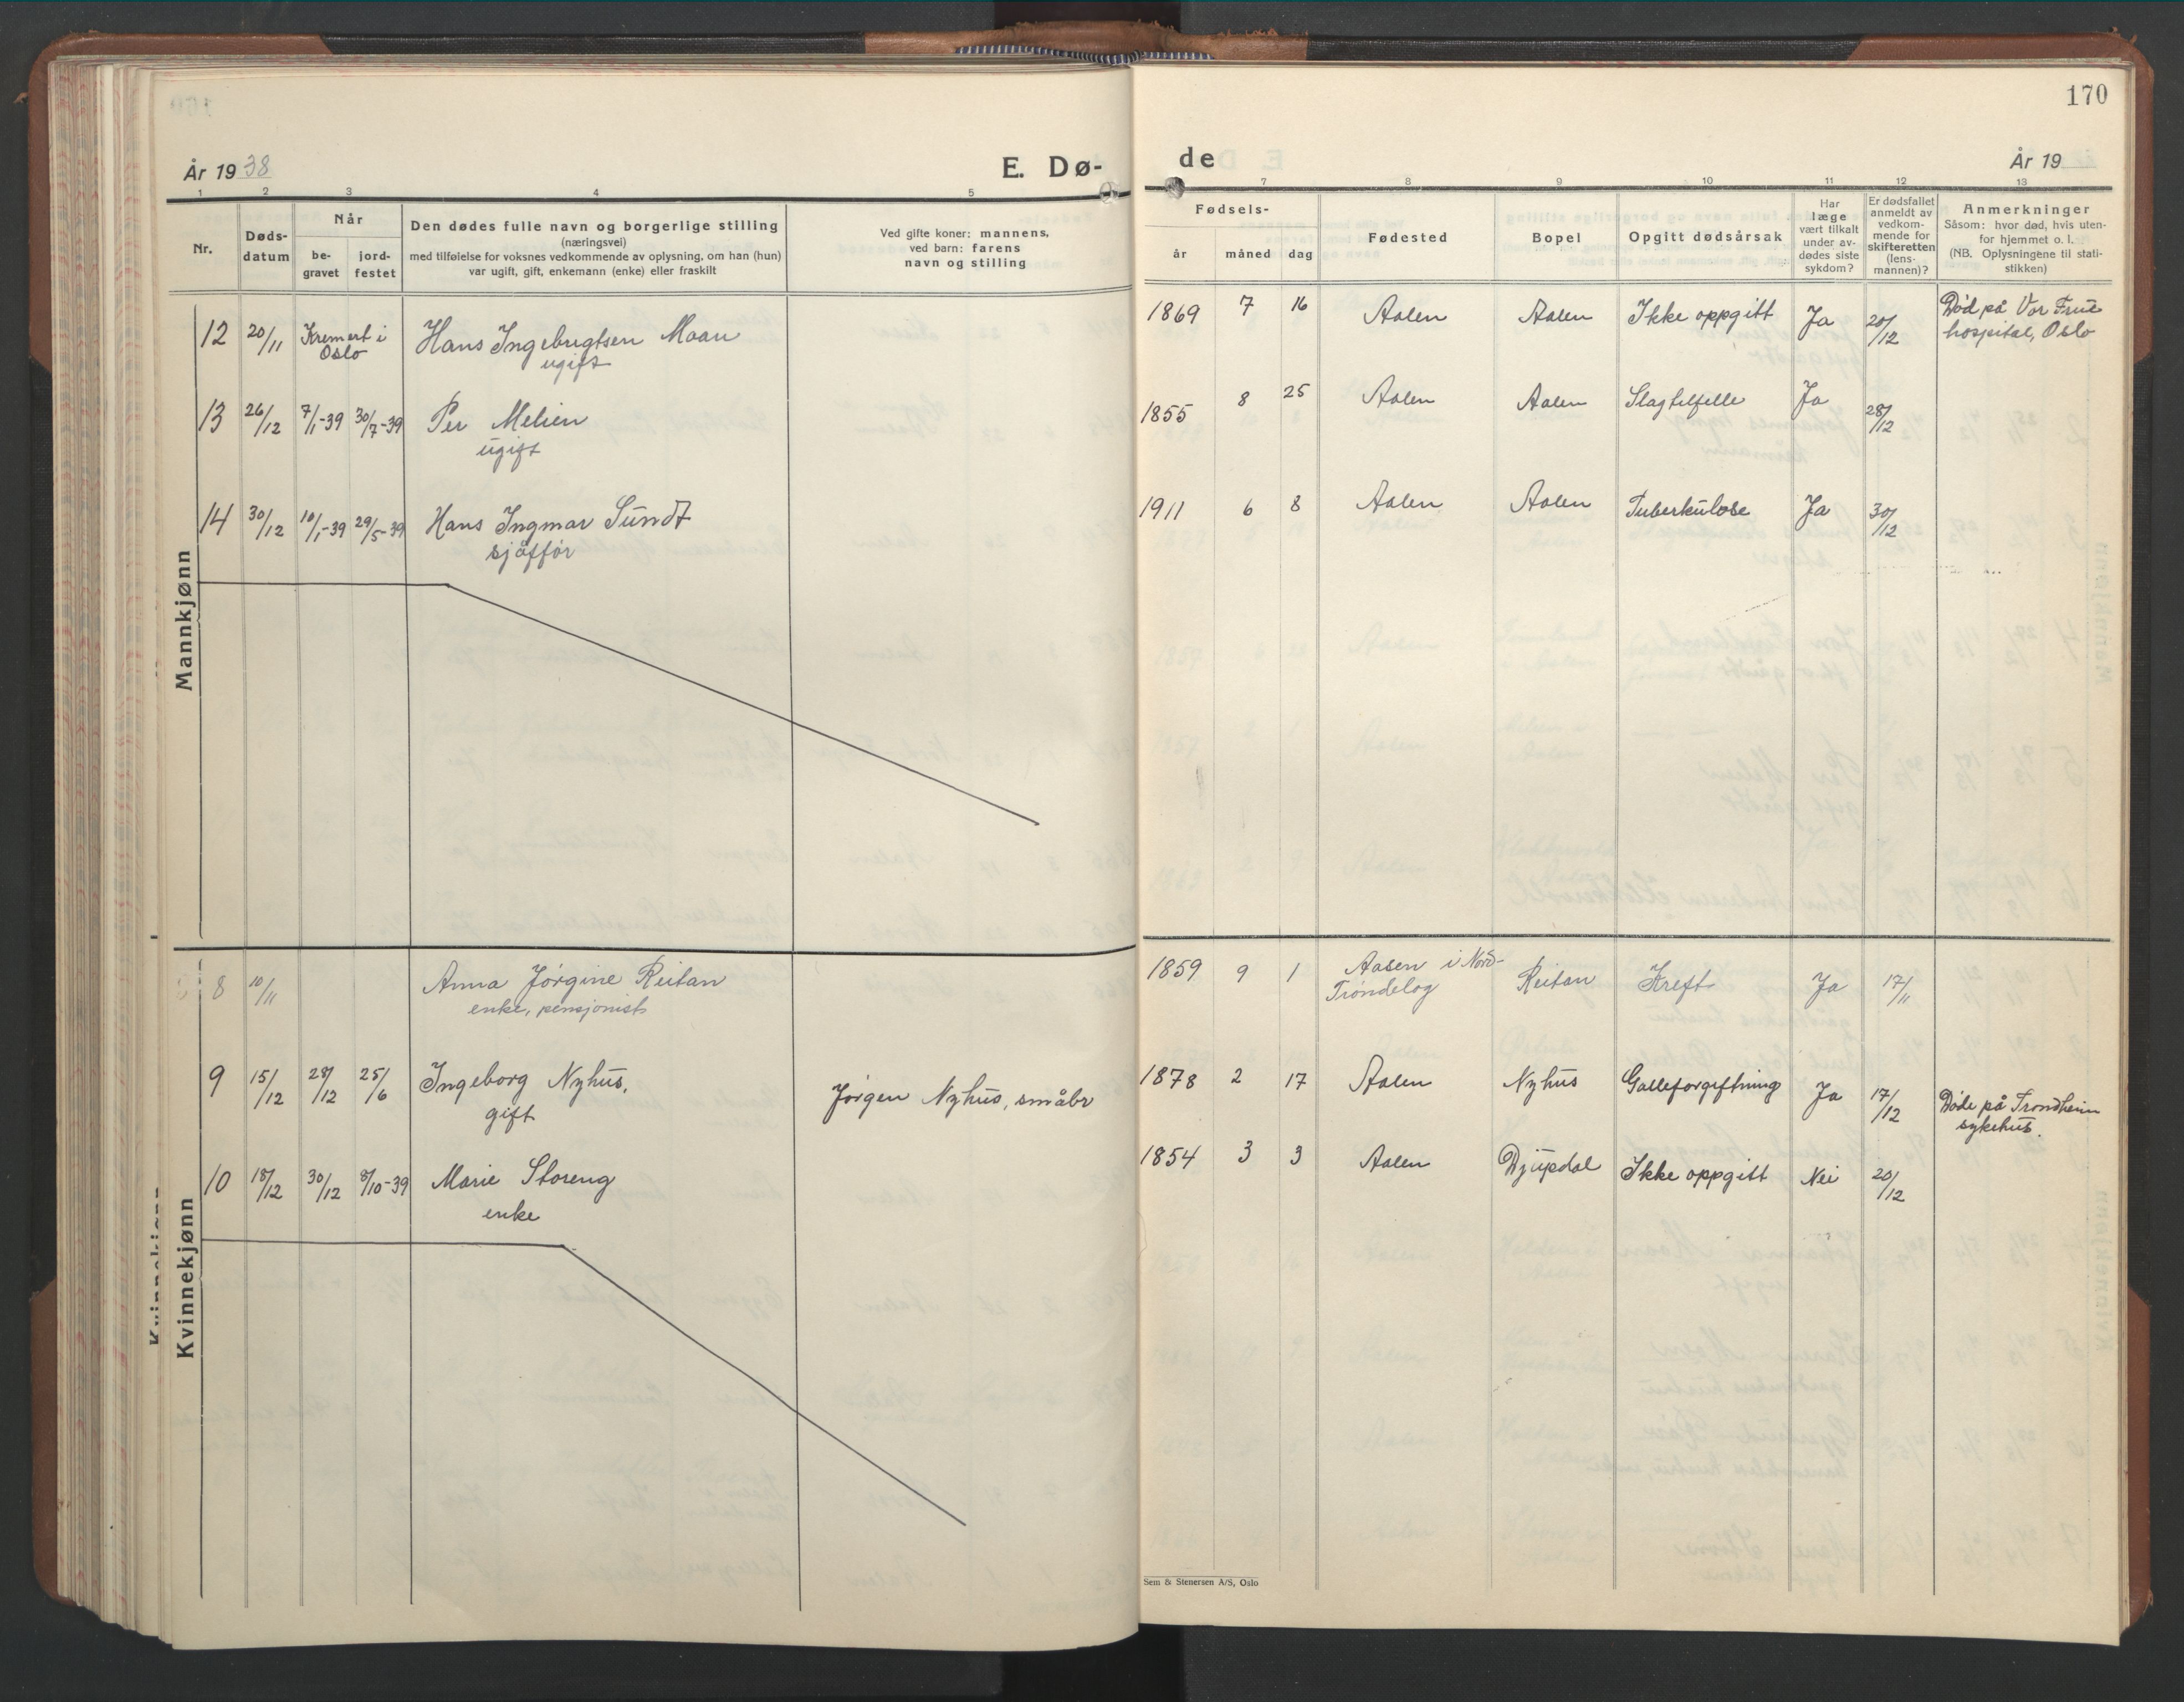 170
År 1938
E. Dø-
de
År 19
1 2 3 4 5
7 8 9 10 11 12 13
Nr.
Døds-
datum
Når
be-
gravet
jord-
festet
Den dødes fulle navn og borgerlige stilling
(næringsvei)
med tilføielse for voksnes vedkommende av oplysning, om han (hun)
var ugift, gift, enkemann (enke) eller fraskilt
Ved gifte koner: mannens,
ved barn: farens
navn og stilling
Fødsels-
år måned dag
Fødested
Bopel
Opgitt dødsårsak
Har
læge
vært tilkalt
under av-
dødes siste
sykdom?
Er dødsfallet
anmeldt av
vedkom-
mende for
skifteretten
(lens-
mannen)?
Anmerkninger
Såsom: hvor død, hvis uten-
for hjemmet o. l.
(NB. Oplysningene til stati-
stikken)
Mannkjønn
12 20/11 Kremert i Hans Ingebrigtsen Moan 1869 7 16 Aalen Aalen Ikke oppgitt Ja 20/12 Død på Vor Frue
Oslo ugift hospital, Oslo
13 26/12 7/1-39 30/7-39 Per Melien 1855 8 25 Aalen Aalen Slagtilfelle Ja 28/12
ugift
14 30/12 10/1-39 29/5-39 Hans Ingmar Sundt 1911 6 8 Aalen Aalen Tuberkulose Ja 30/12
sjåffør
Kvinnekjønn
8 10/11 Anna Jørgine Reitan 1859 9 1 Aasen i Nord- Reitan Kreft Ja 17/11
enke, pensjonist Trøndelag
9 15/12 28/12 25/6 Ingeborg Nyhus, Jørgen Nyhus, småbr 1878 2 17 Aalen Nyhus Galleforgiftning Ja 17/12 Døde på Trondheim
gift sykehus.
10 18/12 30/12 8/10-39 Marie Storeng 1854 3 3 Aalen Djupdal Ikke oppgitt Nei 20/12
enke
Sem & Stenersen A/S, Oslo